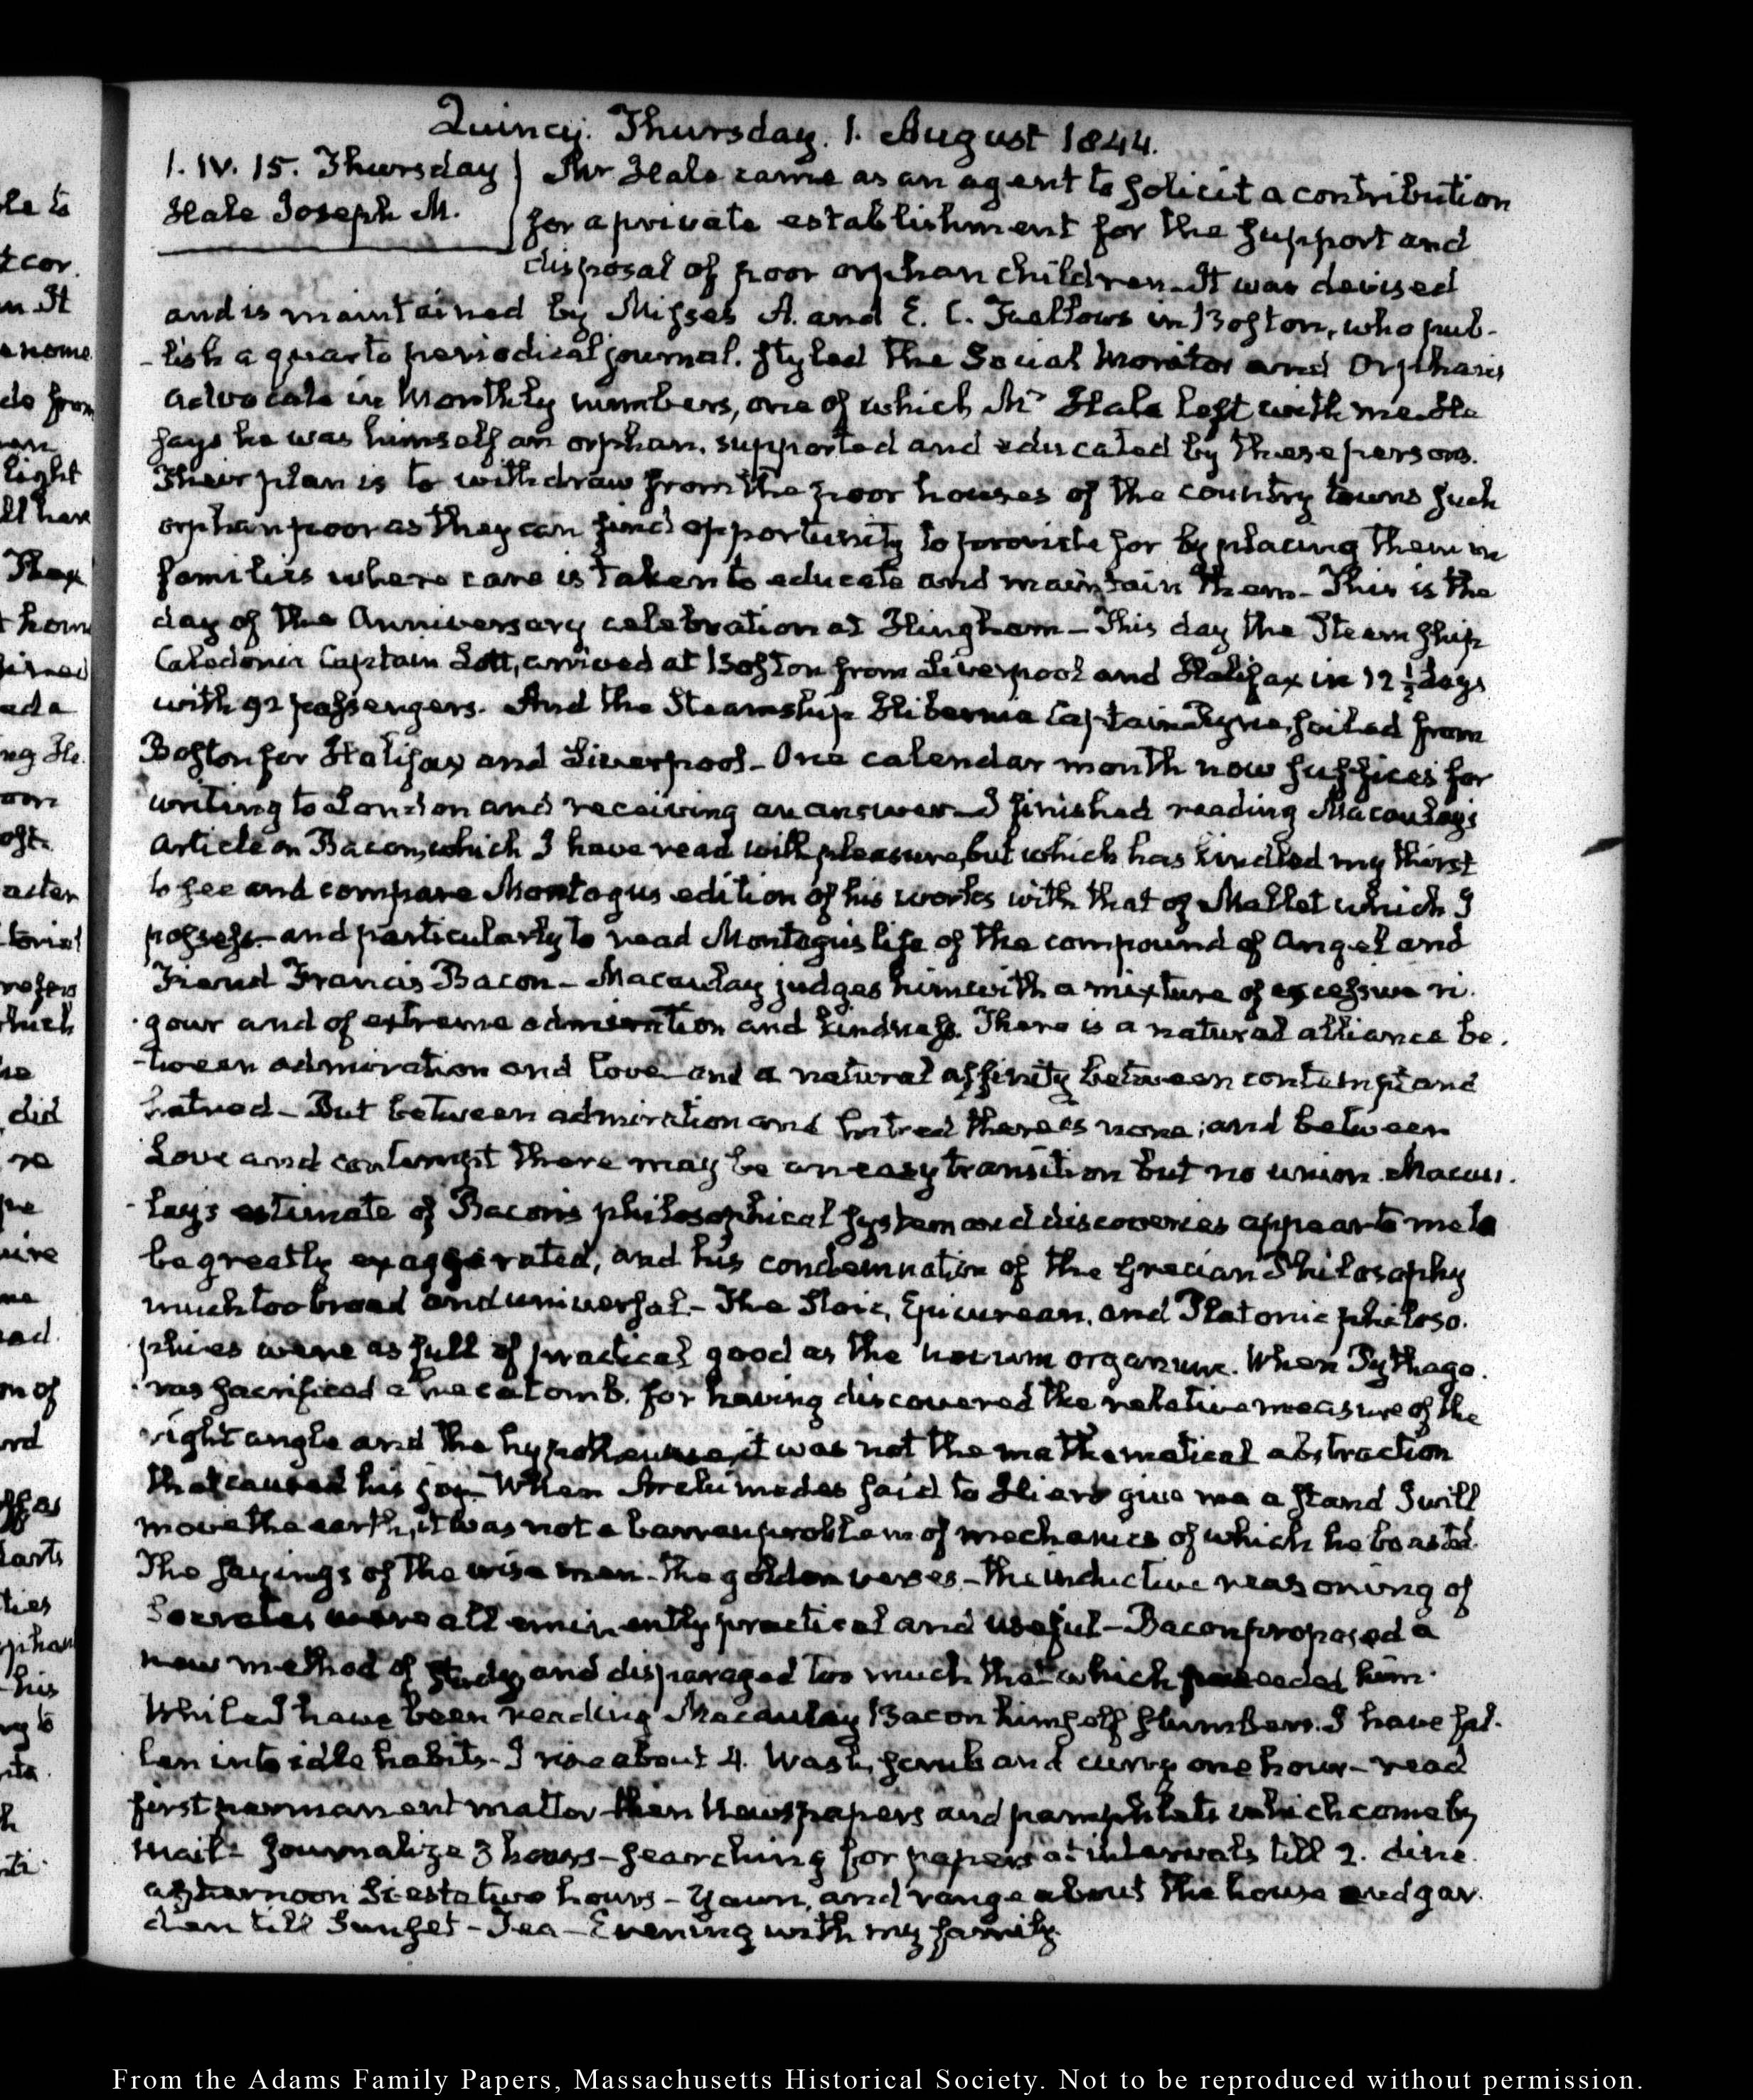 Quincy. Thursday. 1. August 1844.
1. IV. 15. Thursday
Hale Joseph M.
Mr Hale came as an agent to solicit a contribution
for a private establishment for the support and
disposal of poor orphan children. It was devised
and is maintained by Misses A. and E. C. Fellows in Boston, who pub-
-lish a quarto periodical journal. styled the Social Monitor and Orphans
advocate in Monthly numbers, one of which Mr Hale left with me. He
says he was himself an orphan, supported and educated by these persons.
Their plan is to withdraw from the poor houses of the country towns such
orphan poor as they can find opportunity to provide for by placing them in
families where care is taken to educate and maintain them - This is the
day of the Anniversary celebration at Hingham - This day the Steam Ship
Caledonia Captain Lott, arrived at Boston from Liverpool and Halifax in 12 1/2 days
with 92 passengers. And the Steamship Hibernia Captain Ryrie, sailed from
Boston for Halifax and Liverpool - One calendar month now suffices for
writing to London and receiving an answer - I finished reading Macaulays
article on Bacon, which I have read with pleasure, but which has kindled my thirst
to see and compare Montagus edition of his works with that of Mallet which I
possess - and particularly to read Montagu's life of the compound of Angel and
Fiend Francis Bacon - Macaulay judges him with a mixture of excessive ri.
-gour and of extreme admiration and kindness. There is a natural alliance be.
-tween admiration and love and a natural affinity between contempt and
hatred - But between admiration and hatred there is none; and between
Love and contempt there may be an easy transition but no union. Macau.
-lay's estimate of Bacon's philosophical system and discoveries appear to me to
be greatly exaggerated, and his condemnation of the Grecian Philosophy
much too broad and universal - The Stoic, Epicurean, and Platonic philoso.
phies were as full of practical good as the novum organum. When Pythago.
-ras sacrificed a hecatomb. for having discovered the relative measure of the
right angle and the hypothenuse, it was not the mathematical abstraction
that caused his joy - When Archimedes said to Hiero give me a stand I will
move the earth, it was not a barren problem of mechanics of which he boasted.
The sayings of the wise men - the golden verses - the inductive reasoning of
Socrates were all eminently practical and useful - Bacon proposed a
new method of study, and disparaged too much that which preceded him.
While I have been reading Macaulay Bacon himself slumbers. I have fal.
len into idle habits - I rise about 4. Wash, scrub and curry one hour - read
first permanent matter then Newspapers and pamphlets which come by
mail - Journalize 3 hours - searching for papers at intervals till 2. dine.
afternoon Siesta two hours - Yawn, and range about the house and gar.
den till Sunset - Tea - Evening with my family.
le to
t cor.
n It
light
They
did
his
From the Adams Family Papers, Massachusetts Historical Society. Not to be reproduced without permission.